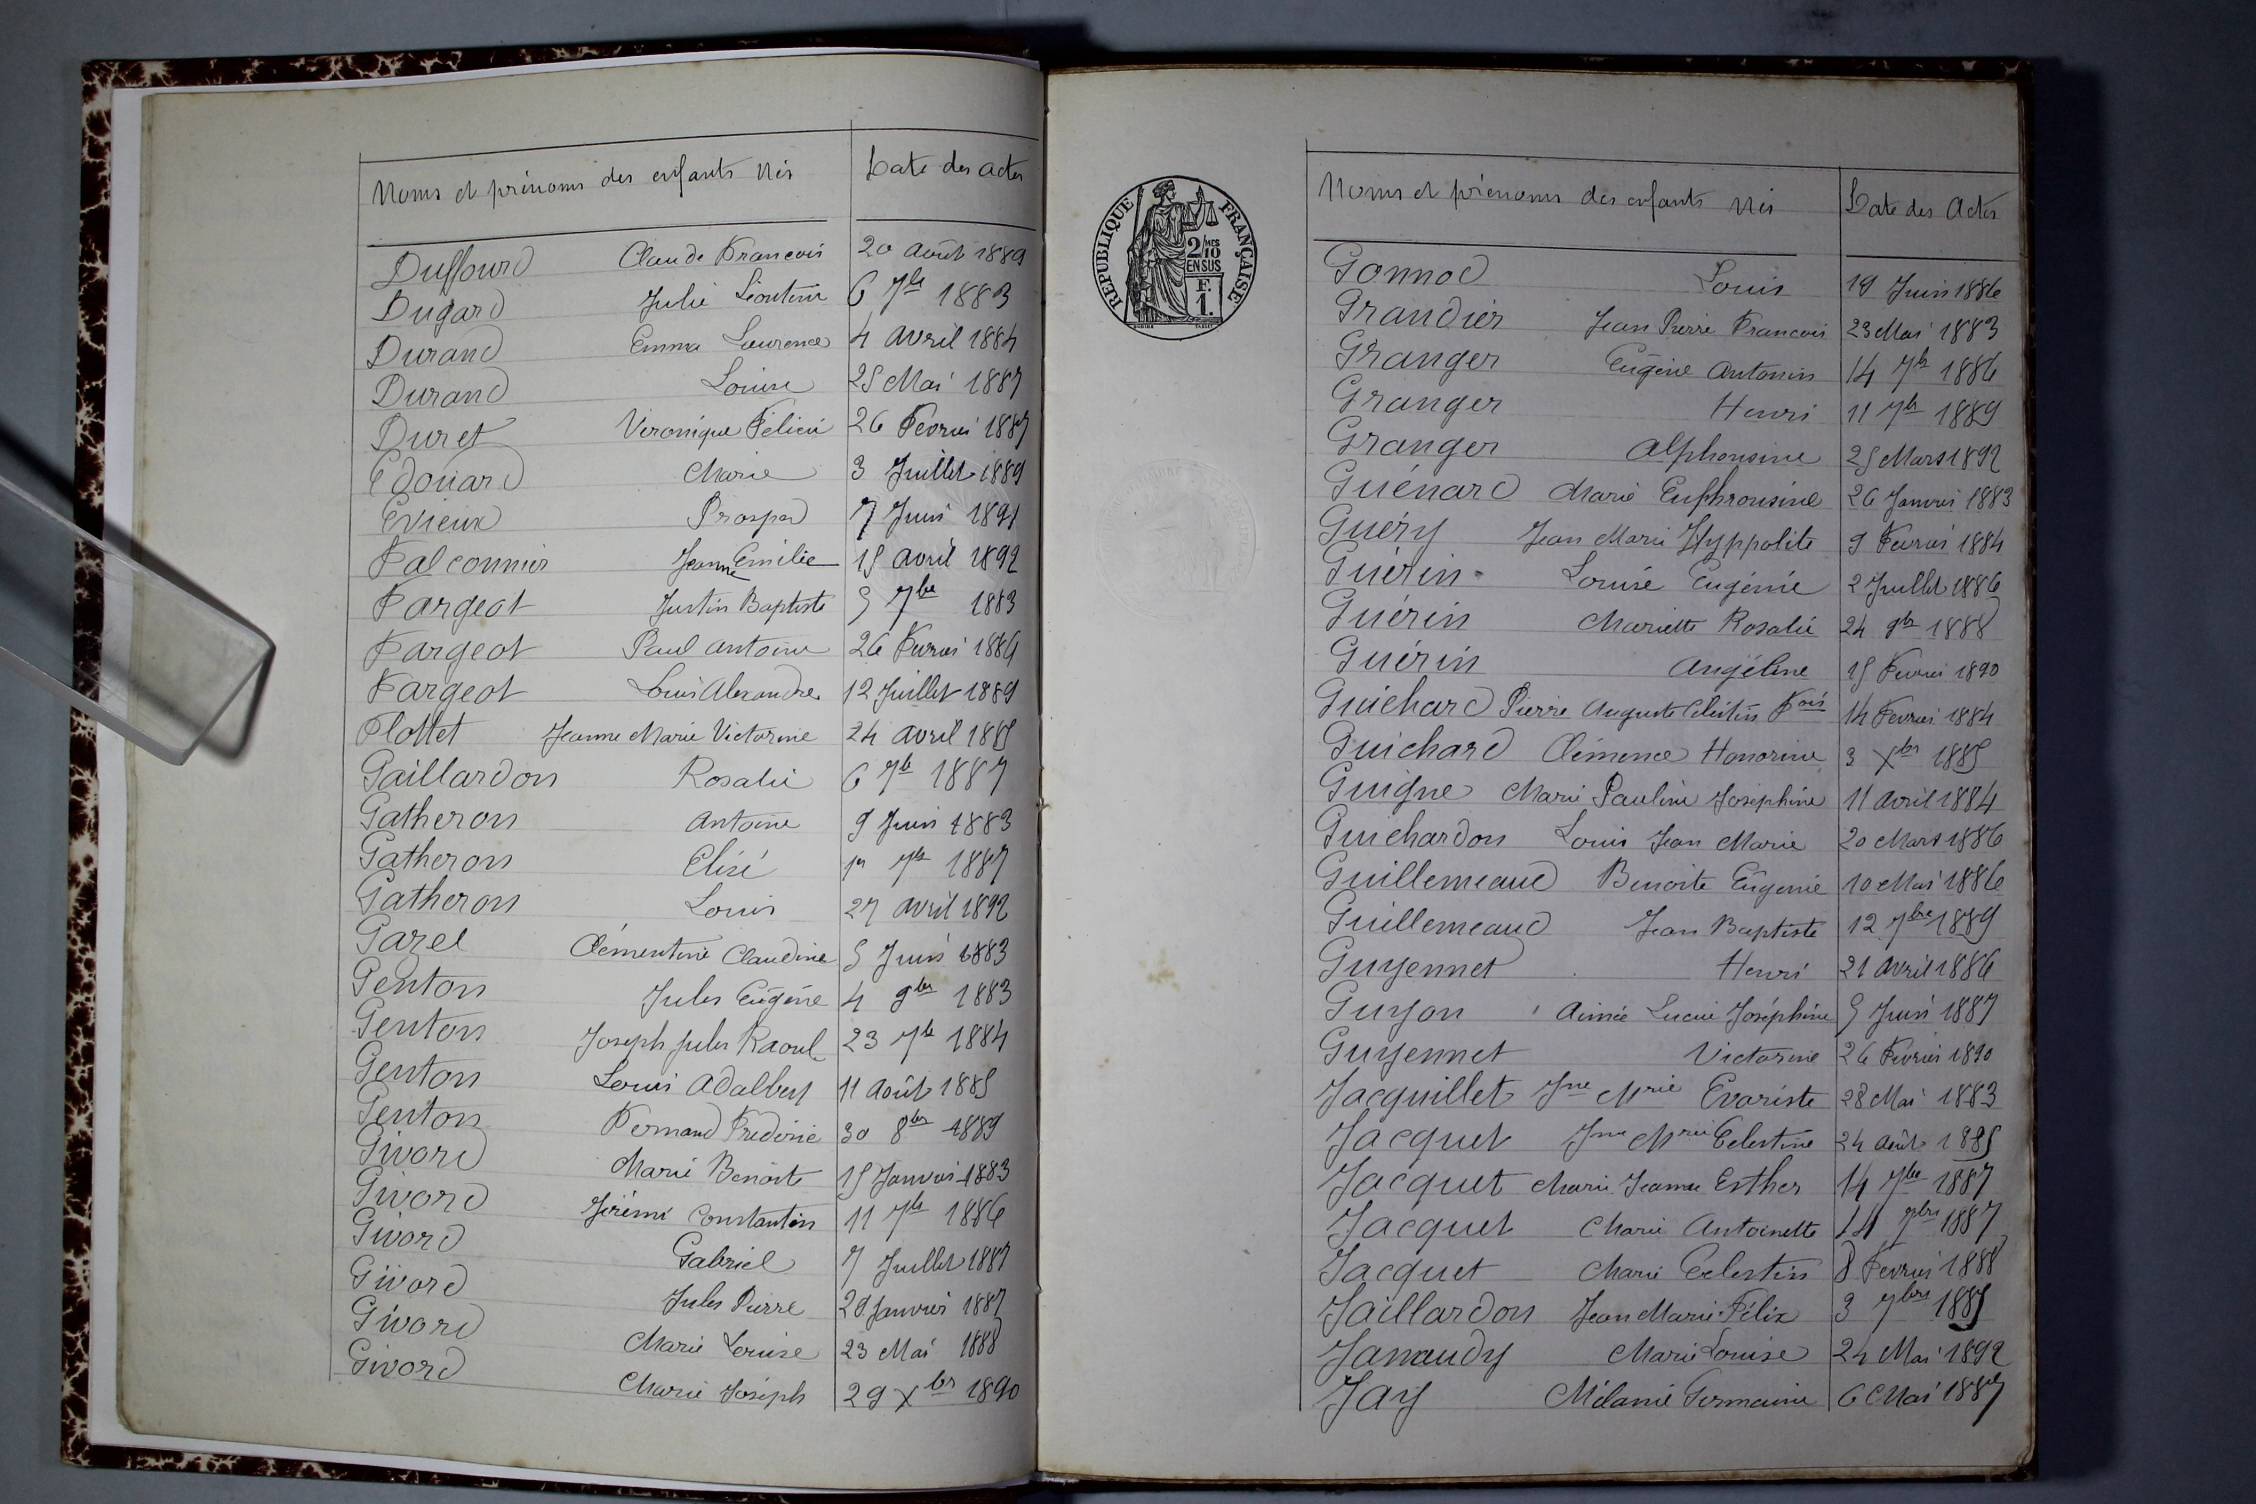 Noms et prénoms des enfants Nés Date des actes
Duffourd Claude Francois 20 août 1889
Dugard Julie Léontine 6 7bre 1883
Durand Emma Laurence 4 avril 1884
Durand Louise 25 Mai 1887
Duret Véronique Félicie 26 Février 1887
Edouard Marie 3 Juillet 1889
Evieux Prosper 7 Juin 1891
Falconnier Jeanne Emilie 15 avril 1892
Fargeot Justin Baptiste 5 7bre 1883
Fargeot Paul Antoine 26 Février 1886
Fargeot Louis Alexandre 12 Juillet 1889
Flottet Jeanne Marie Victorine 24 avril 1885
Gaillardon Rosalie 6 7bre 1887
Gatheron Antoine 9 Juin 1883
Gatheron Elisé 1er 7bre 1887
Gatheron Louis 27 avril 1892
Gazel Clémentine Claudine 5 Juin 1883
Genton Jules Eugène 4 9bre 1883
Genton Joseph Jules Raoul 23 7bre 1884
Genton Louis Adalbert 11 août 1885
Genton Fernand Frédéric 30 8bre 1889
Givord Marie Benoite 15 Janvier 1883
Givord Jérémi Constantin 11 7bre 1886
Givord Gabriel 7 Juillet 1887
Givord Jules Pierre 29 Janvier 1887
Givord Marie Louise 23 Mai 1888
Givord Marie Joseph 29 Xbre 1890
REPUBLIQUE FRANÇAISE
2/10 MES
EN SUS
F.
1.
Noms et prénoms des enfants Nés Date des Actes
Gonnod Louis 19 Juin 1886
Grandier Jean Pierre Francois 23 Mai 1883
Granger Eugène Antonin 14 7bre 1886
Granger Henri 11 7bre 1889
Granger Alphonsine 25 Mars 1892
Guénard Marie Euphrousine 26 Janvier 1883
Guéry Jean Marie Hyppolite 9 Février 1884
Guérin Louise Eugénie 2 Juillet 1886
Guérin Mariette Rosalie 24 9bre 1888
Guérin Angéline 15 Février 1890
Guichard Pierre Auguste Célestin Fois 14 Février 1884
Guichard Clémence Honorine 3 Xbre 1885
Guigne Marie Pauline Joséphine 11 avril 1884
Guichardon Louis Jean Marie 20 Mars 1886
Guillemeaud Benoite Eugénie 10 Mai 1886
Guillemeaud Jean Baptiste 12 7bre 1889
Guyennet Henri 21 avril 1886
Guyon Aimée Lucie Joséphine 5 Juin 1887
Guyennet Victorine 26 Février 1890
Jacquillet Jne Mrie Evariste 28 Mai 1883
Jacquet Jnne Mrie Célestine 24 août 1885
Jacquet Marie Jeanne Esther 14 7bre 1887
Jacquet Marie Antoinette 14 7bre 1887
Jacquet Marie Célestin 8 Février 1888
Jaillardon Jean Marie Félix 3 7bre 1885
Janaudy Marie Louise 24 Mai 1892
Jay Mélanie Germaine 6 Mai 1887